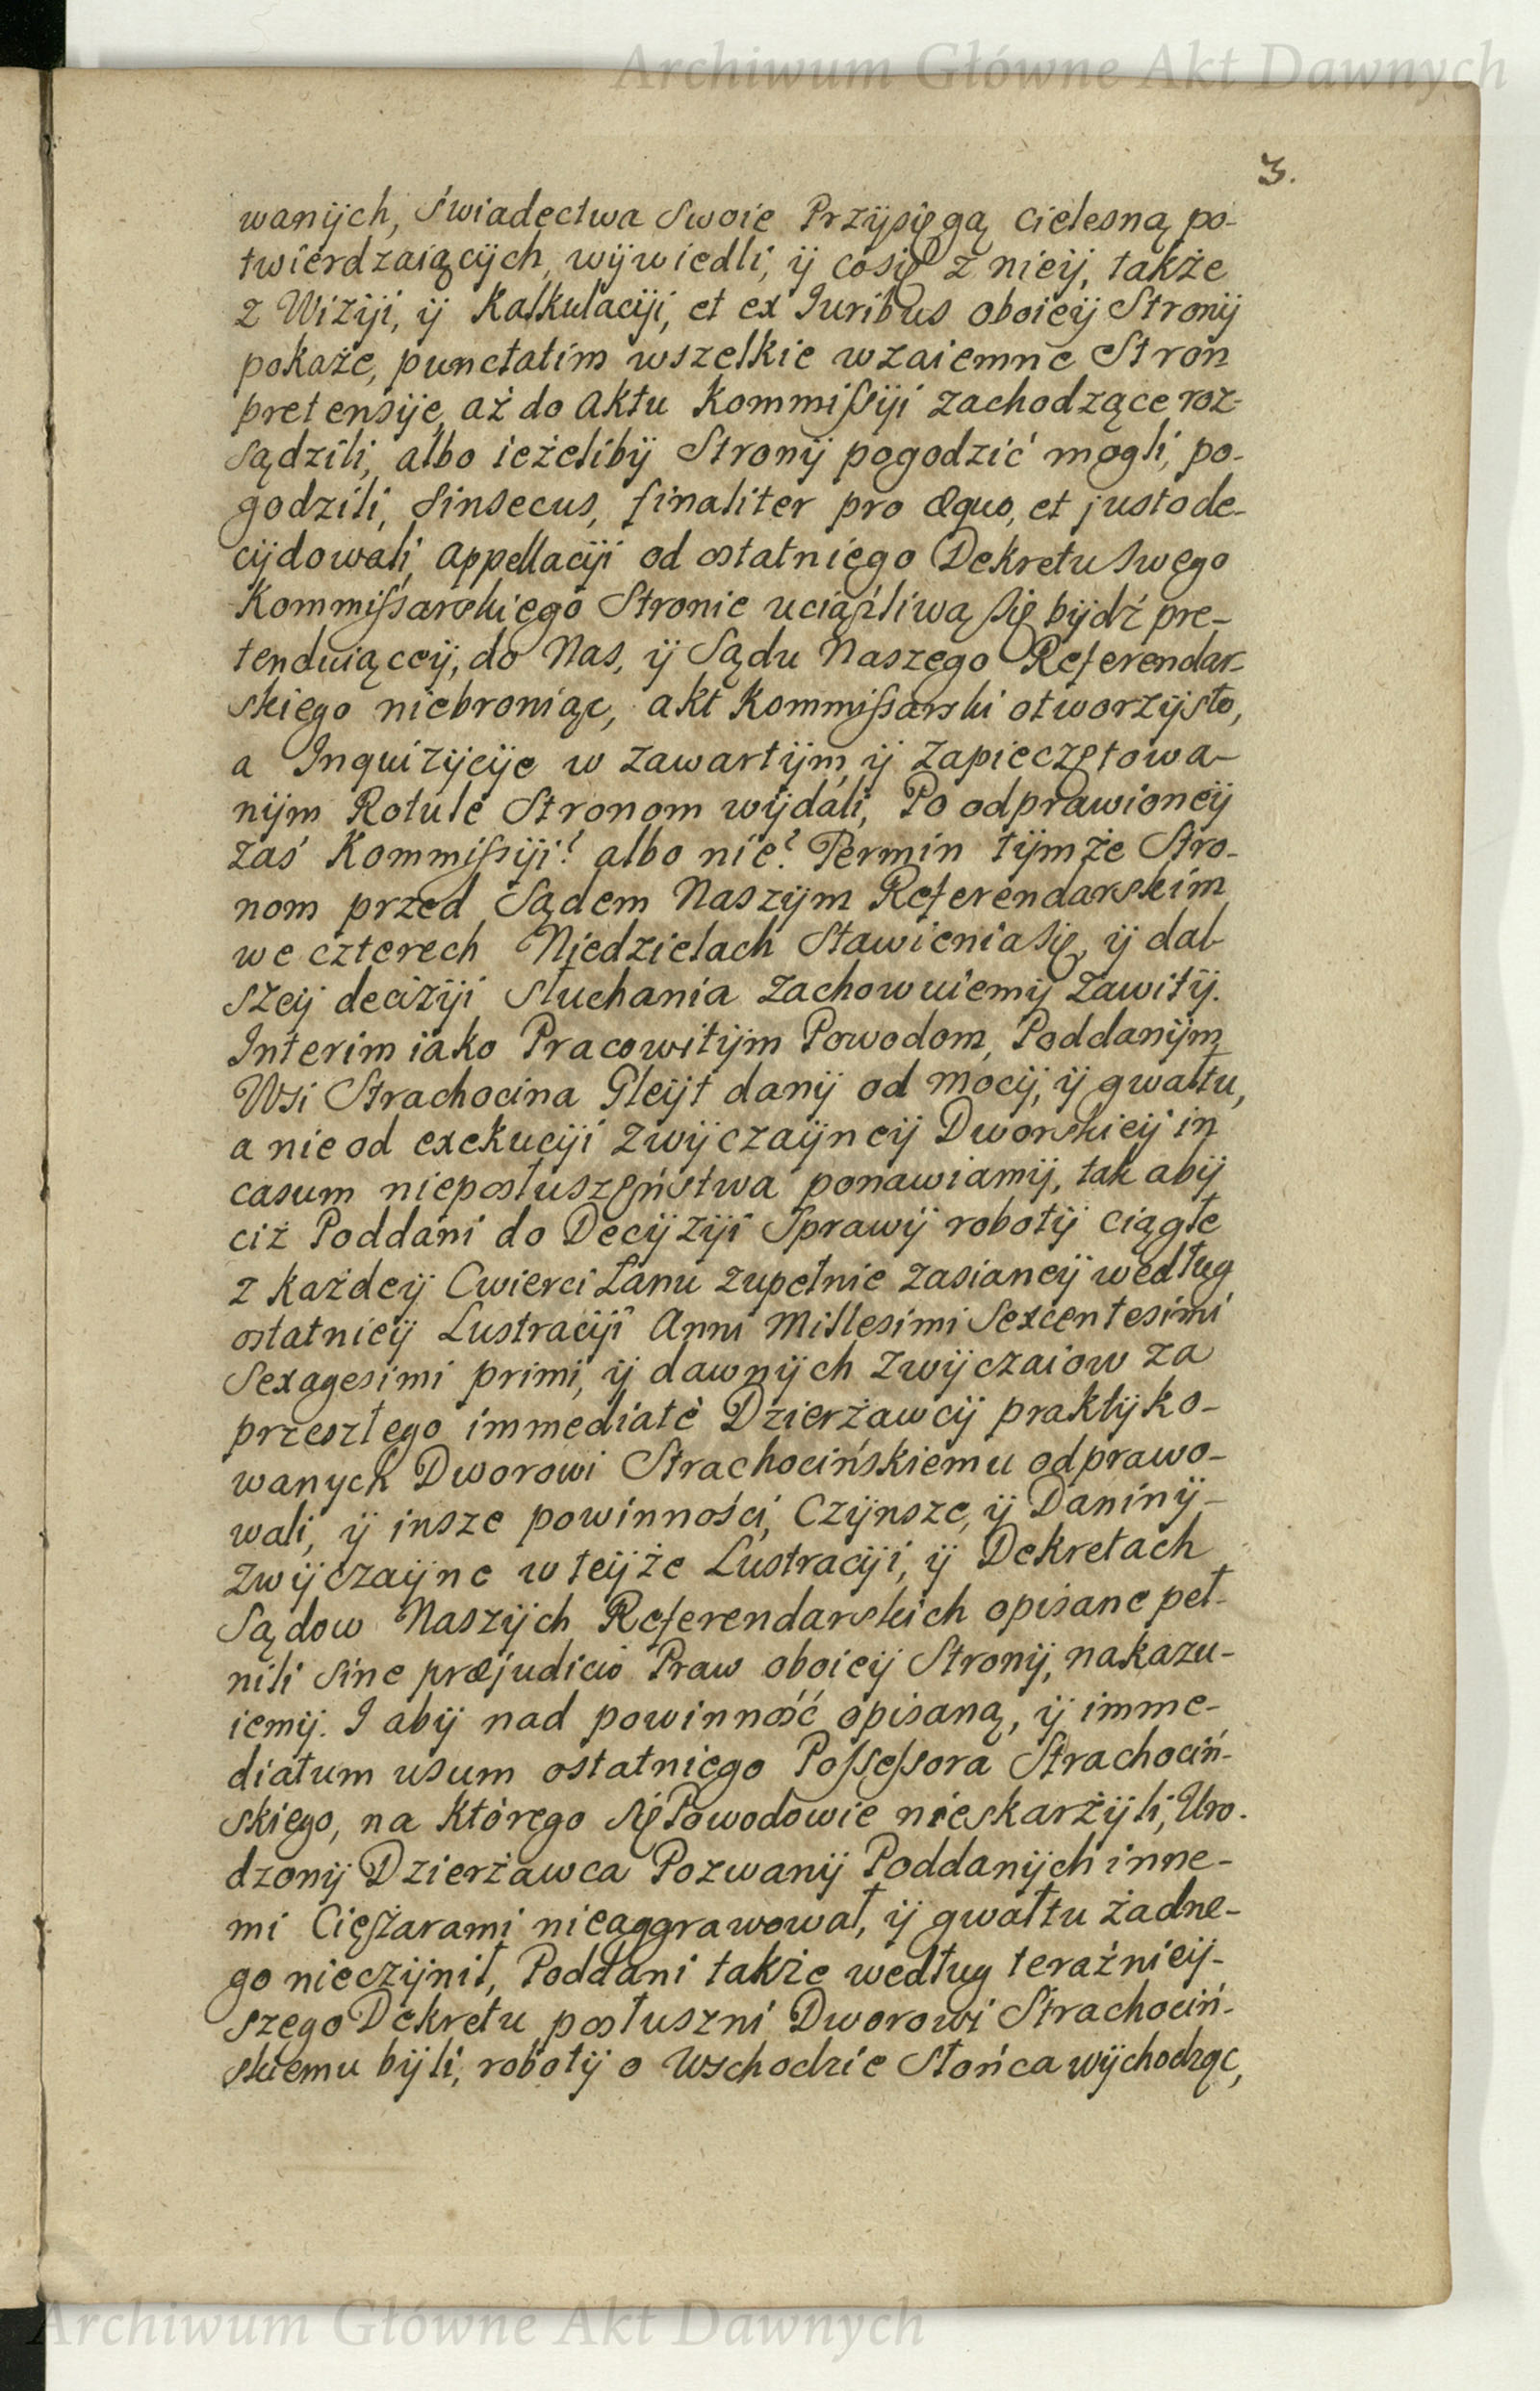 Archiwum Główne Akt Dawnych
3.
wanijch, świadectwa Swoie Przijsięgą cielesną po-
twierdzaiącijch, wijwiedli, ij cosię z nieij, także
z Wiziji, ij Kalkulaciji, et ex Iuribus oboieij Stronij
pokaże, punctatim wszelkie wzaiemne Stron
pretensije, aż do aktu Kommißiji zachodzące roz-
sądzili, albo ieżelibij Stronij pogodzić mogli, po-
godzili, Sinsecus, finaliter pro æquo, et justo de-
cijdowali, appellaciji od ostatniego Dekretu Swego
Kommißarskiego Stronie uciążliwą się bijdź pre-
tenduiąceij, do Nas, ij Sądu Naszego Referendar-
skiego niebroniąc, akt Kommißarski otworzijsto,
a Inquizijcije w zawartijm ij zapieczętowa-
nijm Rotule Stronom wijdali, Po odprawioneij
zaś Kommißiji? albo nie? Termin tijmże Stro-
nom przed Sądem Naszijm Referendarskim
we czterech Niedzielach Stawienia się, ij dal-
szeij deciziji słuchania zachowuiemij zawitij.
Interim iako Pracowitijm Powodom, Poddanijm
Wsi Strachocina Gleijt danij od mocij, ij gwałtu,
a nie od exekuciji zwijczaijneij Dworskieij in
casum nieposłuszęństwa ponawiamij, tak abij
ciż Poddani do Decijziji Sprawij robotij ciągłe
z każdeij Cwierci Łanu zupełnie zasianeij według
ostatnieij Lustraciji Anni Millesimi Sexcentesimi
Sexagesimi primi, ij dawnijch zwijczaiow za
przeszłego immediatè Dzierżawcij praktijko-
wanych Dworowi Strachocińskiemu odprawo-
wali, ij insze powinności, Czijnsze, ij Daninij-
zwijczaijne w teijże Lustraciji, ij Dekretach
Sądow Naszijch Referendarskich opisane peł-
nili sine præjudicio Praw oboieij Stronij, nakazu-
iemij. I abij nad powinność opisaną, ij imme-
diatum usum ostatniego Possessora Strachociń-
skiego, na którego się Powodowie nieskarżijli, Uro-
dzonij Dzierżawca Pozwanij Poddanijch inne-
mi Ciężarami nieaggrawował, ij gwałtu żadne-
go nieczijnił, Poddani także według teraźnieij-
szego Dekretu posłuszni Dworowi Strachociń-
skiemu bijli, robotij o Wschodzie Słońca wijchodząc,
Archiwum Główne Akt Dawnych